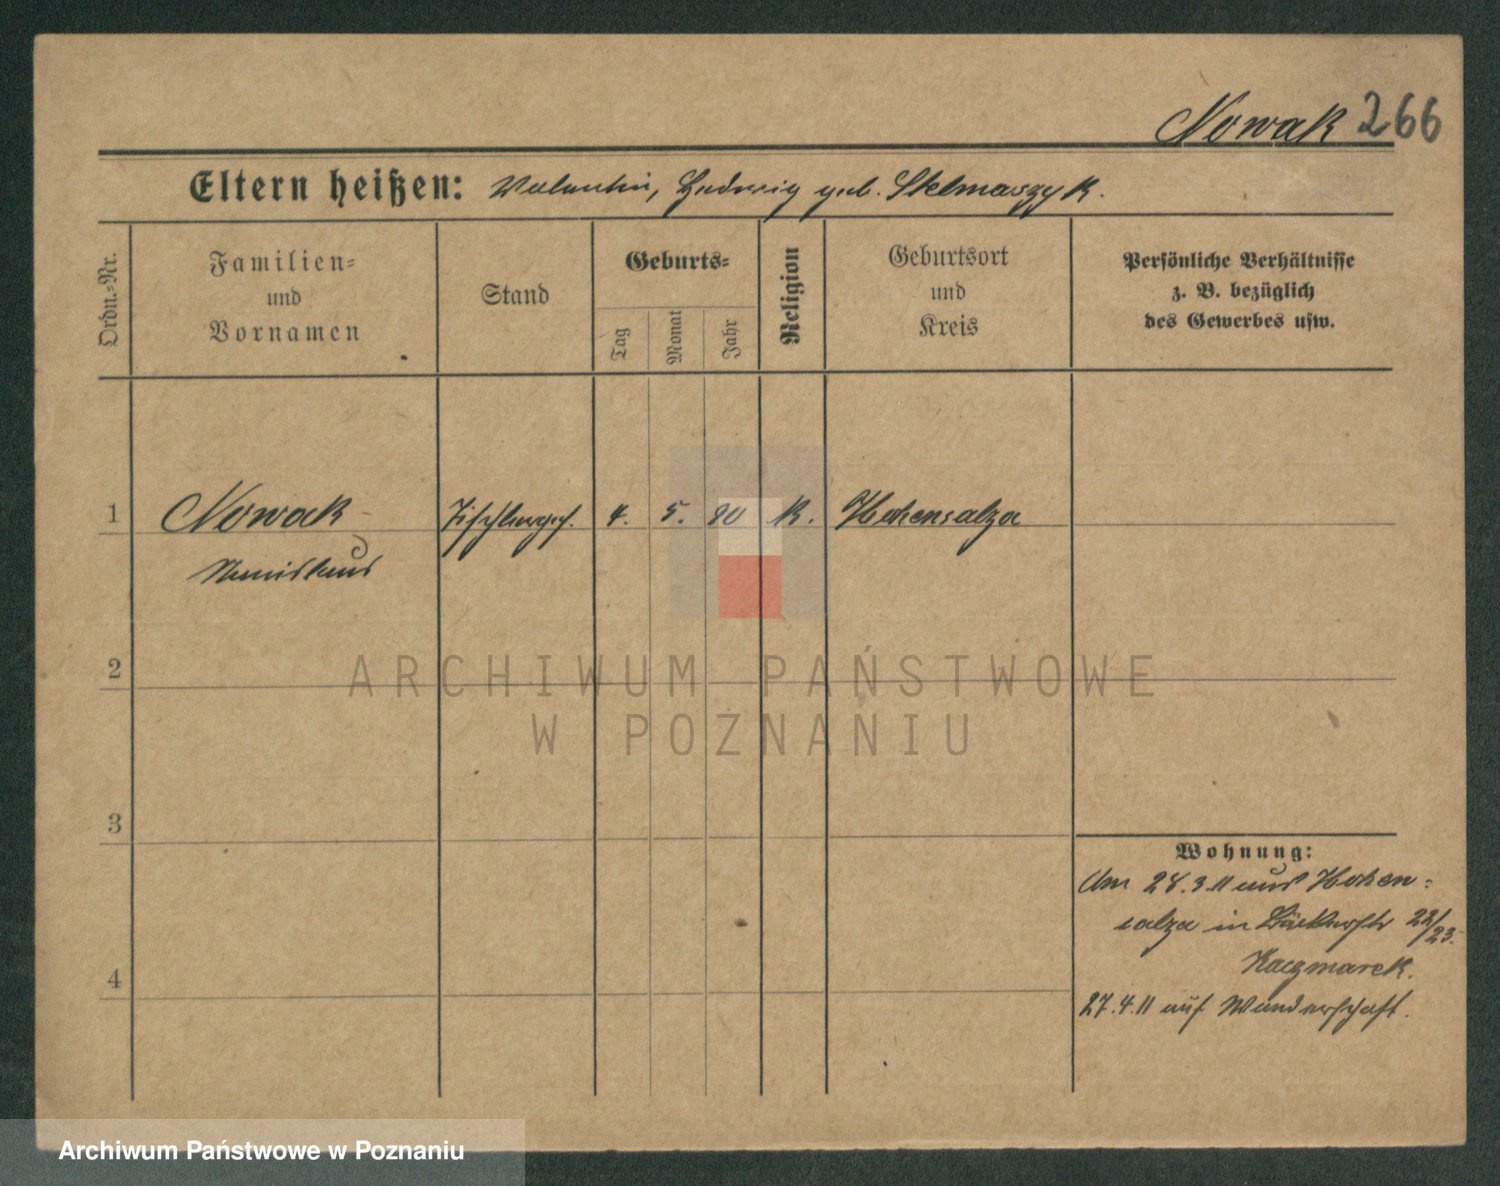 Nowak 266
Eltern heißen: Valentin, Hedwig geb. Stelmaszyk.
Ordn.-Nr.
Familien-
und
Vornamen
Stand
Geburts-
Tag
Monat
Jahr
Religion
Geburtsort
und
Kreis
Persönliche Verhältnisse
z. B. bezüglich
des Gewerbes usw.
1 Nowak Tischlerges. 4. 5. 80 k. Hohensalza
Stanislaus
2
ARCHIWUM PAŃSTWOWE
W POZNANIU
3
Wohnung:
Am 28.3.11 aus Hohen-
salza in Bäckerstr 22/23.
Kaczmarek.
4
27.4.11 auf Wanderschaft.
Archiwum Państwowe w Poznaniu